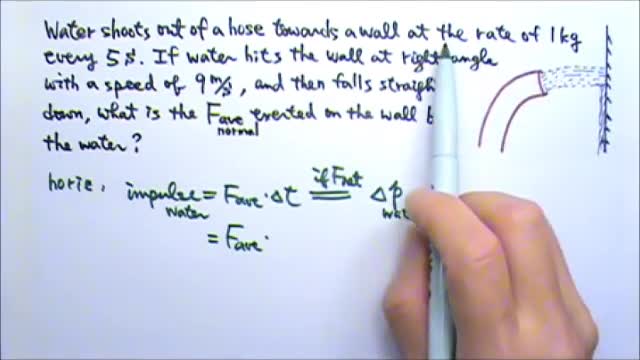 Water shoots out of a hose towards a wall at the rate of 1 kg
every 5 s. If water hits the wall at right angle
with a speed of 9 m/s, and then falls straigh
down, what is the Fave exerted on the wall
normal
the water?
horiz. impulse = Fave · Δt if Fnet = Δp
water
= Fave ·